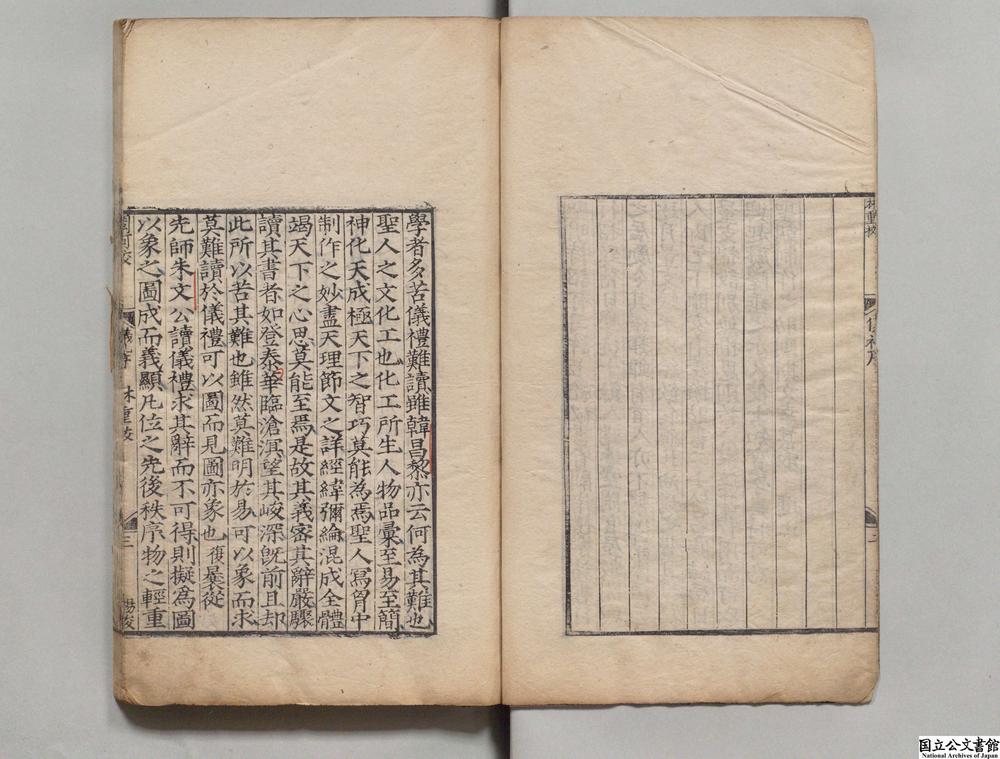 林重校
二
學者多苦儀禮難讀雖韓昌黎亦云何為其難也
聖人之文化工也化工所生人物品彙至易至簡
神化天成極天下之智巧莫能為焉聖人寫胷中
制作之妙盡天理節文之詳經緯彌綸混成全體
竭天下之心思莫能至焉是故其義密其辭嚴驟
讀其書者如登泰華臨滄溟望其峻深旣前且却
此所以苦其難也雖然莫難明於易可以象而求
莫難讀於儀禮可以圖而見圖亦象也復曩從
先師朱文公讀儀禮求其辭而不可得則擬為圖
以象之圖成而義顯凡位之先後秩序物之輕重
林重校
三
國立公文書館
National Archives of Japan